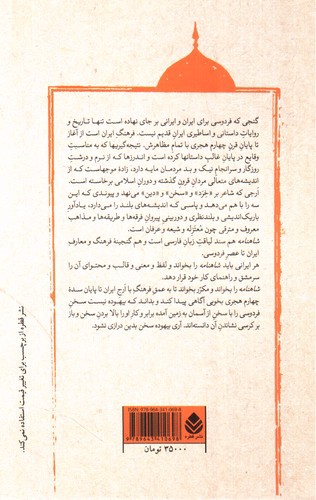 گنجی که فردوسی برای ایران و ایرانی بر جای نهاده است تنها تاریخ و
روایات داستانی و اساطیری ایران قدیم نیست. فرهنگ ایران است از آغاز
تا پایان قرن چهارم هجری با تمام مظاهرش. نتیجه‌گیریها که به مناسبت
وقایع در پایان غالب داستانها کرده است و اندرزها که از نرم و درشت
روزگار و سرانجام نیک و بد مردمان مایه دارد، زادهٔ موجهاست که از
اندیشه‌های متعالی مردان قرون گذشته و دوران اسلامی برخاسته است.
ارجی که شاعر بر «خِرَد» و «سخن» و «دین» می‌نهد و پیوندی که این
سه را با هم می‌دهد و پاسی که اندیشه‌های بلند را می‌دارد، یادآور
باریک‌اندیشی و بلندنظری و دوربینی پیروان فرقه‌ها و طریقه‌ها و مذاهب
معروف و مترقی چون مُعتزِله و شیعه و عرفان است.
شاهنامه هم سند لیاقتِ زبانِ فارسی است و هم گنجینهٔ فرهنگ و معارفِ
ایران تا عصرِ فردوسی.
هر ایرانی باید شاهنامه را بخواند و لفظ و معنی و قالب و محتوای آن را
سرمشق و راهنمای کار خود قرار دهد.
شاهنامه را بخواند و مکرّر بخواند تا به عمق فرهنگ با ارج ایران تا پایان سدهٔ
چهارم هجری بخوبی آگاهی پیدا کند و بداند که بیهوده نیست سخنِ
فردوسی را با سخنِ از آسمان به زمین آمده برابر و کار او را بالا بردنِ سخن و باز
بر کرسی نشاندنِ آن دانسته‌اند. آری بیهوده سخن بدین درازی نشود.
نشر قطره از برچسب برای تغییر قیمت استفاده نمی‌کند.
ISBN: 978-964-341-069-8
9789643410698
نشر قطره
۳۵۰۰۰ تومان